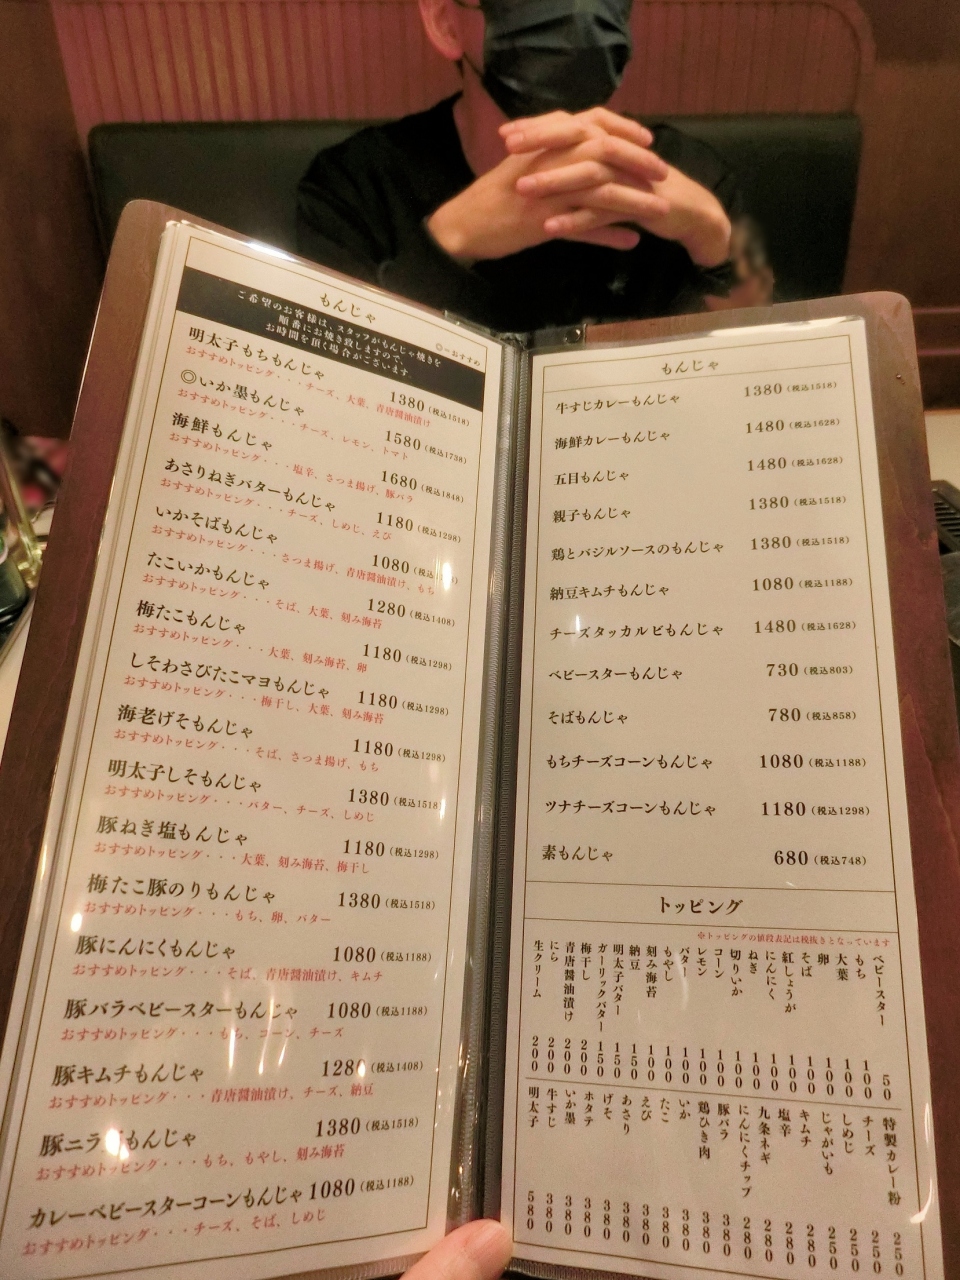 もんじゃ
ご希望のお客様は、スタッフがもんじゃ焼きを
順番にお焼き致しますので、
お時間を頂く場合がございます。
◎=おすすめ
明太子もちもんじゃ 1380(税込1518)
おすすめトッピング・・・チーズ、大葉、青唐醤油漬け
◎いか墨もんじゃ 1580(税込1738)
おすすめトッピング・・・チーズ、レモン、トマト
海鮮もんじゃ 1680(税込1848)
おすすめトッピング・・・塩辛、さつま揚げ、豚バラ
あさりねぎバターもんじゃ 1180(税込1298)
おすすめトッピング・・・チーズ、しめじ、えび
いかそばもんじゃ 1080(税込
おすすめトッピング・・・さつま揚げ、青唐醤油漬け、もち
たこいかもんじゃ 1280(税込1408)
おすすめトッピング・・・そば、大葉、刻み海苔
梅たこもんじゃ 1180(税込1298)
おすすめトッピング・・・大葉、刻み海苔、卵
しそわさびたこマヨもんじゃ 1180(税込1298)
おすすめトッピング・・・梅干し、大葉、刻み海苔
海老げそもんじゃ 1180(税込1298)
おすすめトッピング・・・そば、さつま揚げ、もち
明太子しそもんじゃ 1380(税込1518)
おすすめトッピング・・・バター、チーズ、しめじ
豚ねぎ塩もんじゃ 1180(税込1298)
おすすめトッピング・・・大葉、刻み海苔、梅干し
梅たこ豚のりもんじゃ 1380(税込1518)
おすすめトッピング・・・もち、卵、バター
豚にんにくもんじゃ 1080(税込1188)
おすすめトッピング・・・そば、青唐醤油漬け、キムチ
豚バラベビースターもんじゃ 1080(税込1188)
おすすめトッピング・・・もち、コーン、チーズ
豚キムチもんじゃ 1280(税込1408)
おすすめトッピング・・・青唐醤油漬け、チーズ、納豆
豚ニラ もんじゃ 1380(税込1518)
おすすめトッピング・・・もち、もやし、刻み海苔
カレーベビースターコーンもんじゃ 1080(税込1188)
おすすめトッピング・・・チーズ、そば、しめじ
もんじゃ
牛すじカレーもんじゃ 1380(税込1518)
海鮮カレーもんじゃ 1480(税込1628)
五目もんじゃ 1480(税込1628)
親子もんじゃ 1380(税込1518)
鶏とバジルソースのもんじゃ 1380(税込1518)
納豆キムチもんじゃ 1080(税込1188)
チーズタッカルビもんじゃ 1480(税込1628)
ベビースターもんじゃ 730(税込803)
そばもんじゃ 780(税込858)
もちチーズコーンもんじゃ 1080(税込1188)
ツナチーズコーンもんじゃ 1180(税込1298)
素もんじゃ 680(税込748)
トッピング
※トッピングの値段表記は税抜きとなっています
ベビースター 50
もち 100
大葉 100
卵 100
そば 100
紅しょうが 100
にんにく 100
ねぎ 100
切りいか 100
コーン 100
レモン 100
バター 100
もやし 100
刻み海苔 100
納豆 150
明太子バター 150
ガーリックバター 150
梅干し 200
青唐醤油漬け 200
にら 200
生クリーム 200
特製カレー粉 250
チーズ 250
しめじ 250
じゃがいも 250
キムチ 280
塩辛 280
九条ネギ 280
にんにくチップ 280
豚バラ 380
鶏ひき肉 380
いか 380
たこ 380
えび 380
あさり 380
げそ 380
ホタテ 380
いか墨 380
牛すじ 380
明太子 580